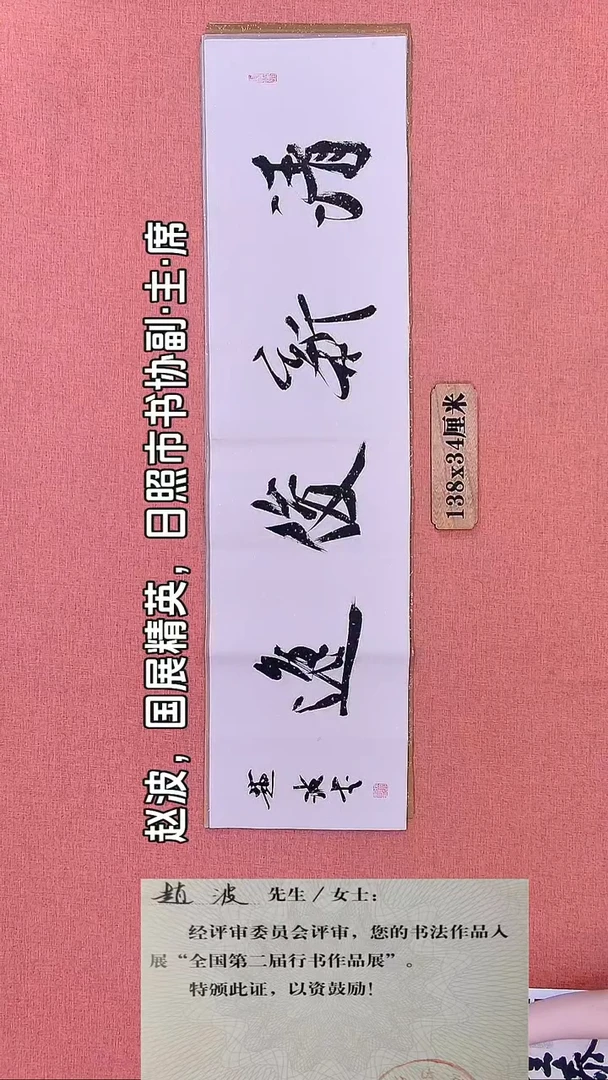 清新俊逸
趙波书
赵波，国展精英，日照市书协副·主·席
138x34厘米
趙波 先生／女士：
经评审委员会评审，您的书法作品入
展“全国第二届行书作品展”。
特颁此证，以资鼓励！